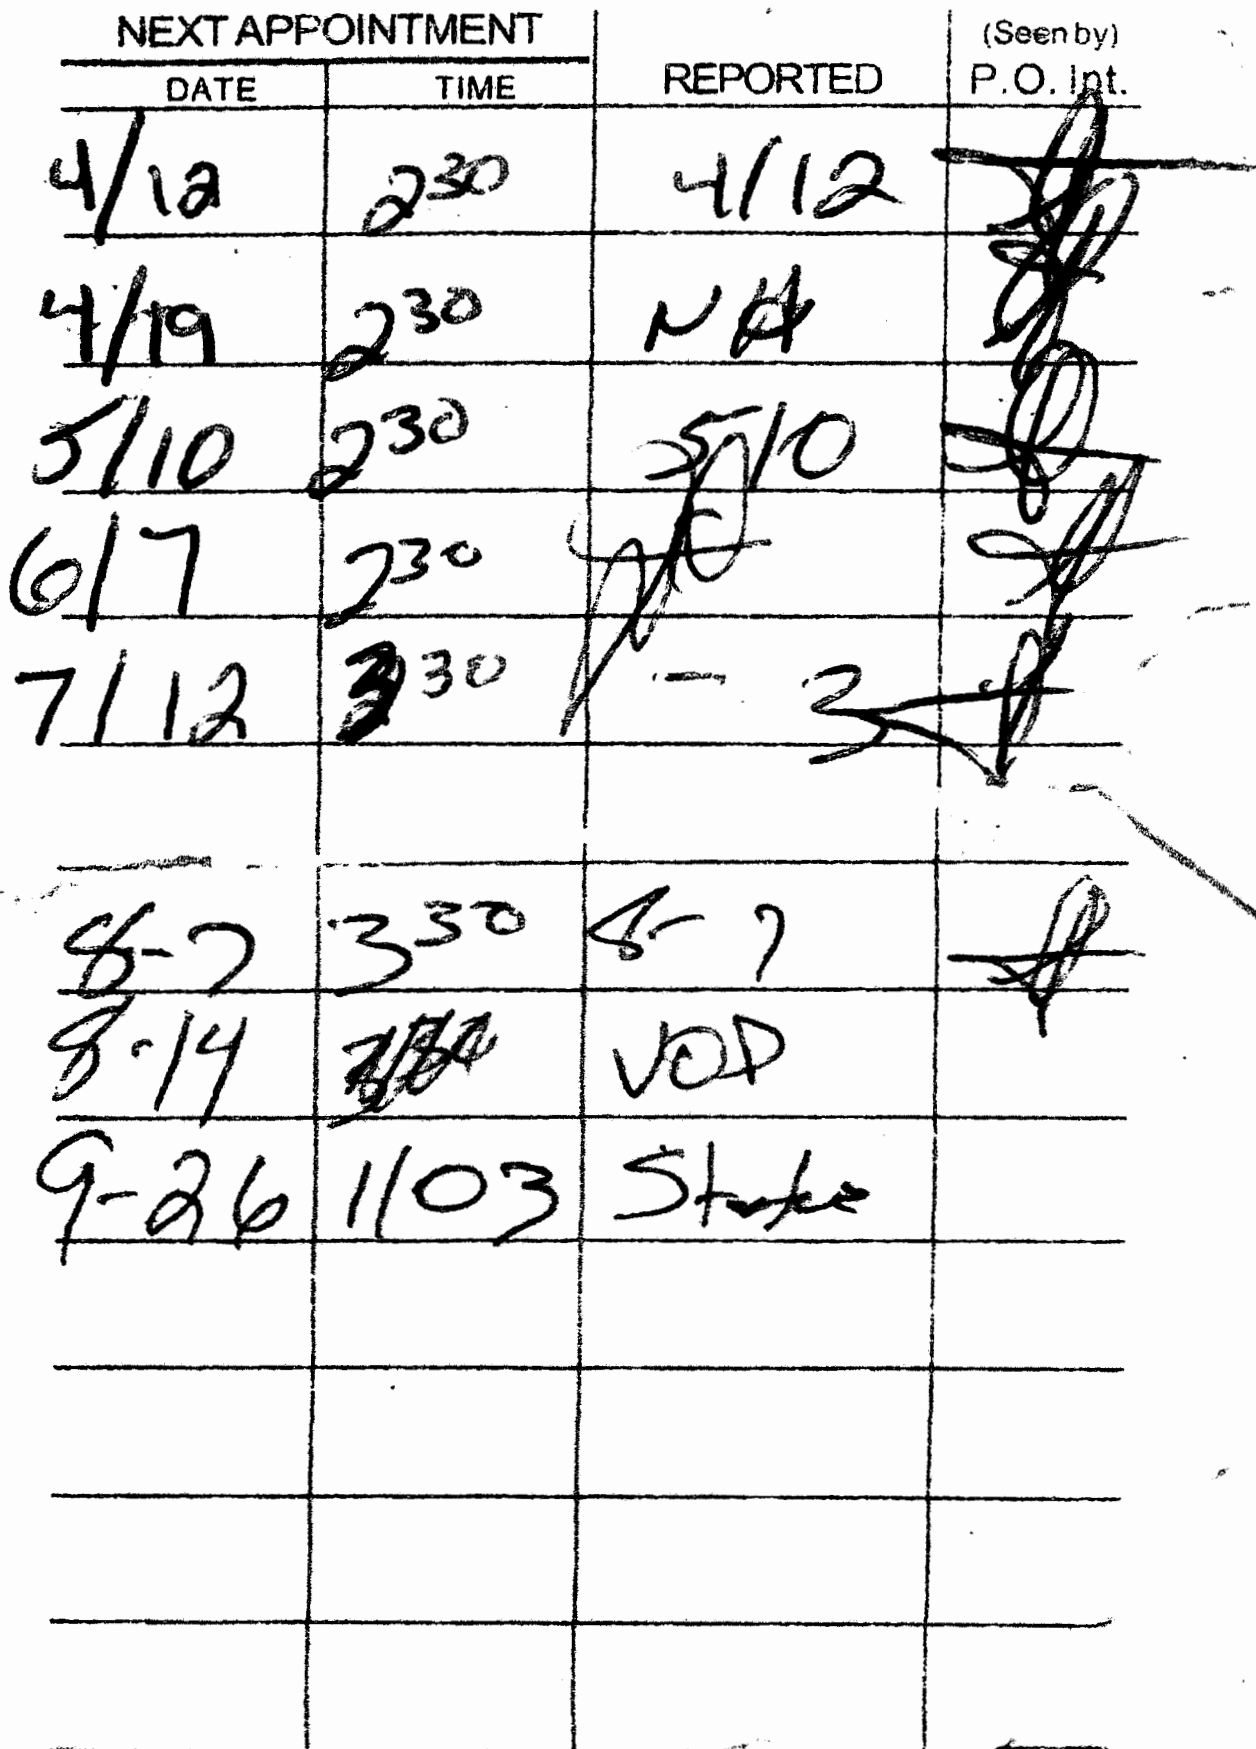 NEXT APPOINTMENT (Seen by)
DATE TIME REPORTED P.O. Int.
4/12 2³⁰ 4/12
4/19 2³⁰ NA
5/10 2³⁰ 5/10
6/7 2³⁰
7/12 3³⁰ -
8-7 3³⁰ 8-7
8-14 VOP
9-26 1/03